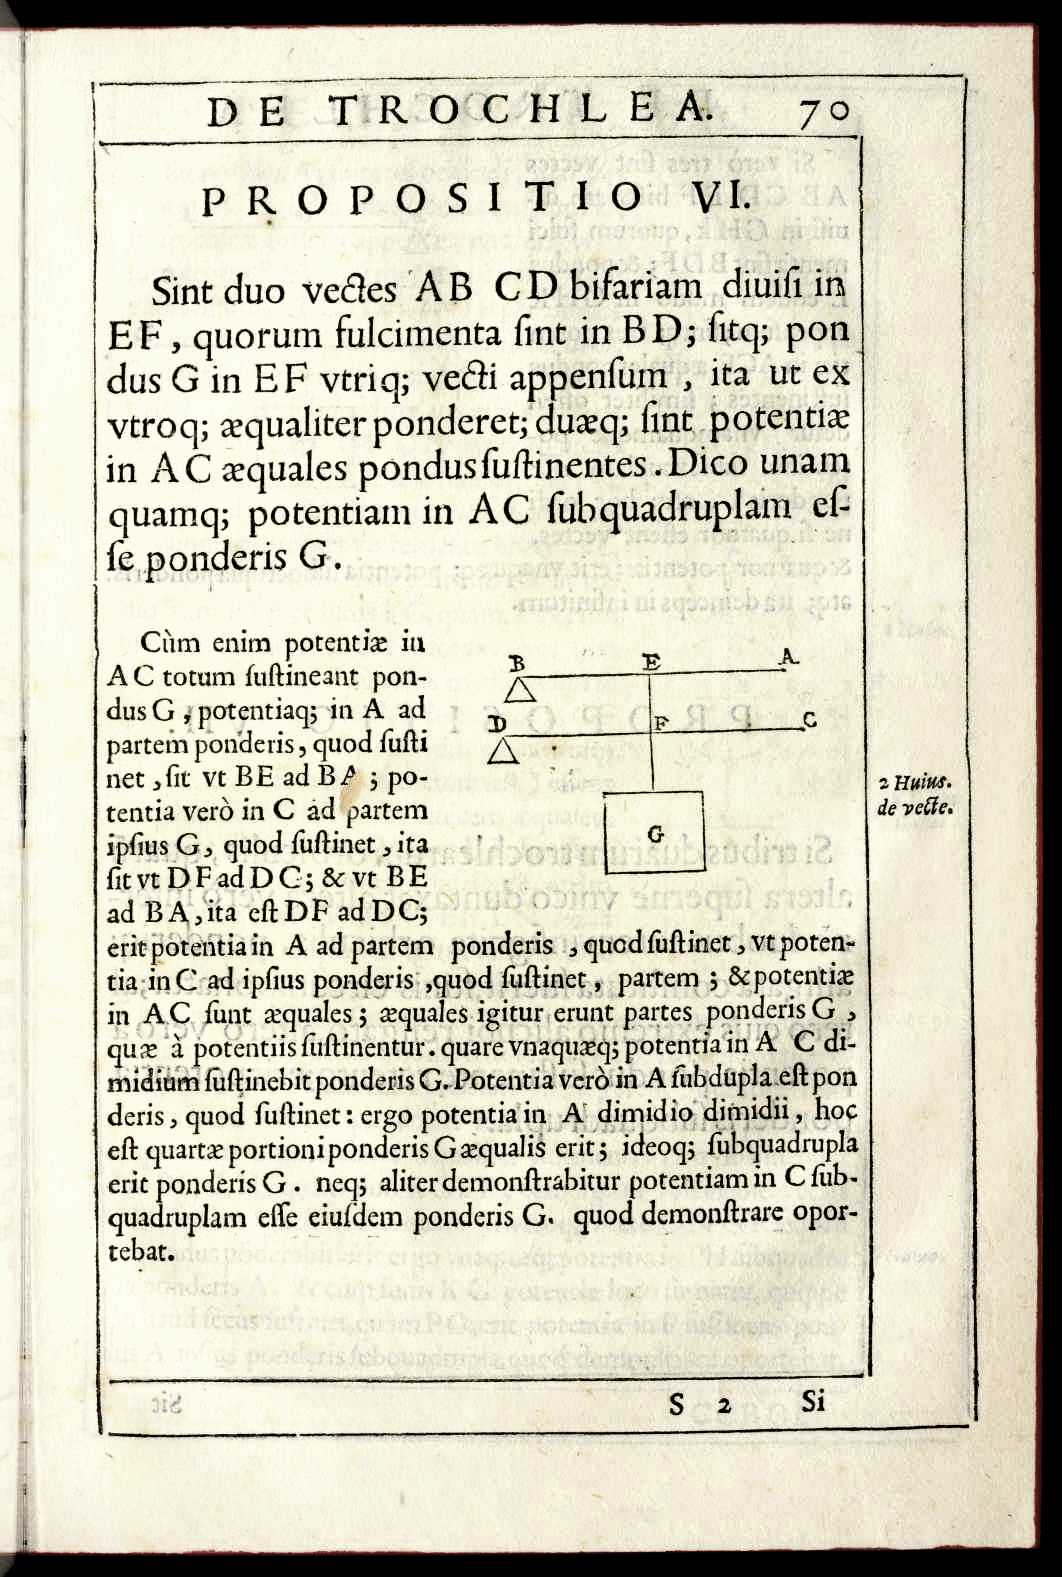 DE TROCHLEA. 70
PROPOSITIO VI.
Sint duo vectes AB CD bifariam diuiſi in
EF, quorum fulcimenta ſint in BD; ſitq; pon
dus G in EF vtriq; vecti appenſum, ita ut ex
vtroq; æqualiter ponderet; duæq; ſint potentiæ
in AC æquales pondus ſuſtinentes. Dico unam
quamq; potentiam in AC ſubquadruplam eſ-
ſe ponderis G.
Cùm enim potentiæ in
AC totum ſuſtineant pon-
dus G, potentiaq; in A ad
partem ponderis, quod ſuſti
net, ſit vt BE ad BA; po-
tentia verò in C ad partem
ipſius G, quod ſuſtinet, ita
ſit vt DF ad DC; & vt BE
ad BA, ita eſt DF ad DC;
B E A
D F C
G
2 Huius.
de vecte.
erit potentia in A ad partem ponderis, quod ſuſtinet, vt poten-
tia in C ad ipſius ponderis, quod ſuſtinet, partem; & potentiæ
in AC ſunt æquales; æquales igitur erunt partes ponderis G,
quæ à potentiis ſuſtinentur. quare vnaquæq; potentia in A C di-
midium ſuſtinebit ponderis G. Potentia verò in A ſubdupla eſt pon
deris, quod ſuſtinet: ergo potentia in A dimidio dimidii, hoc
eſt quartæ portioni ponderis G æqualis erit; ideoq; ſubquadrupla
erit ponderis G. neq; aliter demonſtrabitur potentiam in C ſub-
quadruplam eſſe eiuſdem ponderis G. quod demonſtrare opor-
tebat.
S 2 Si